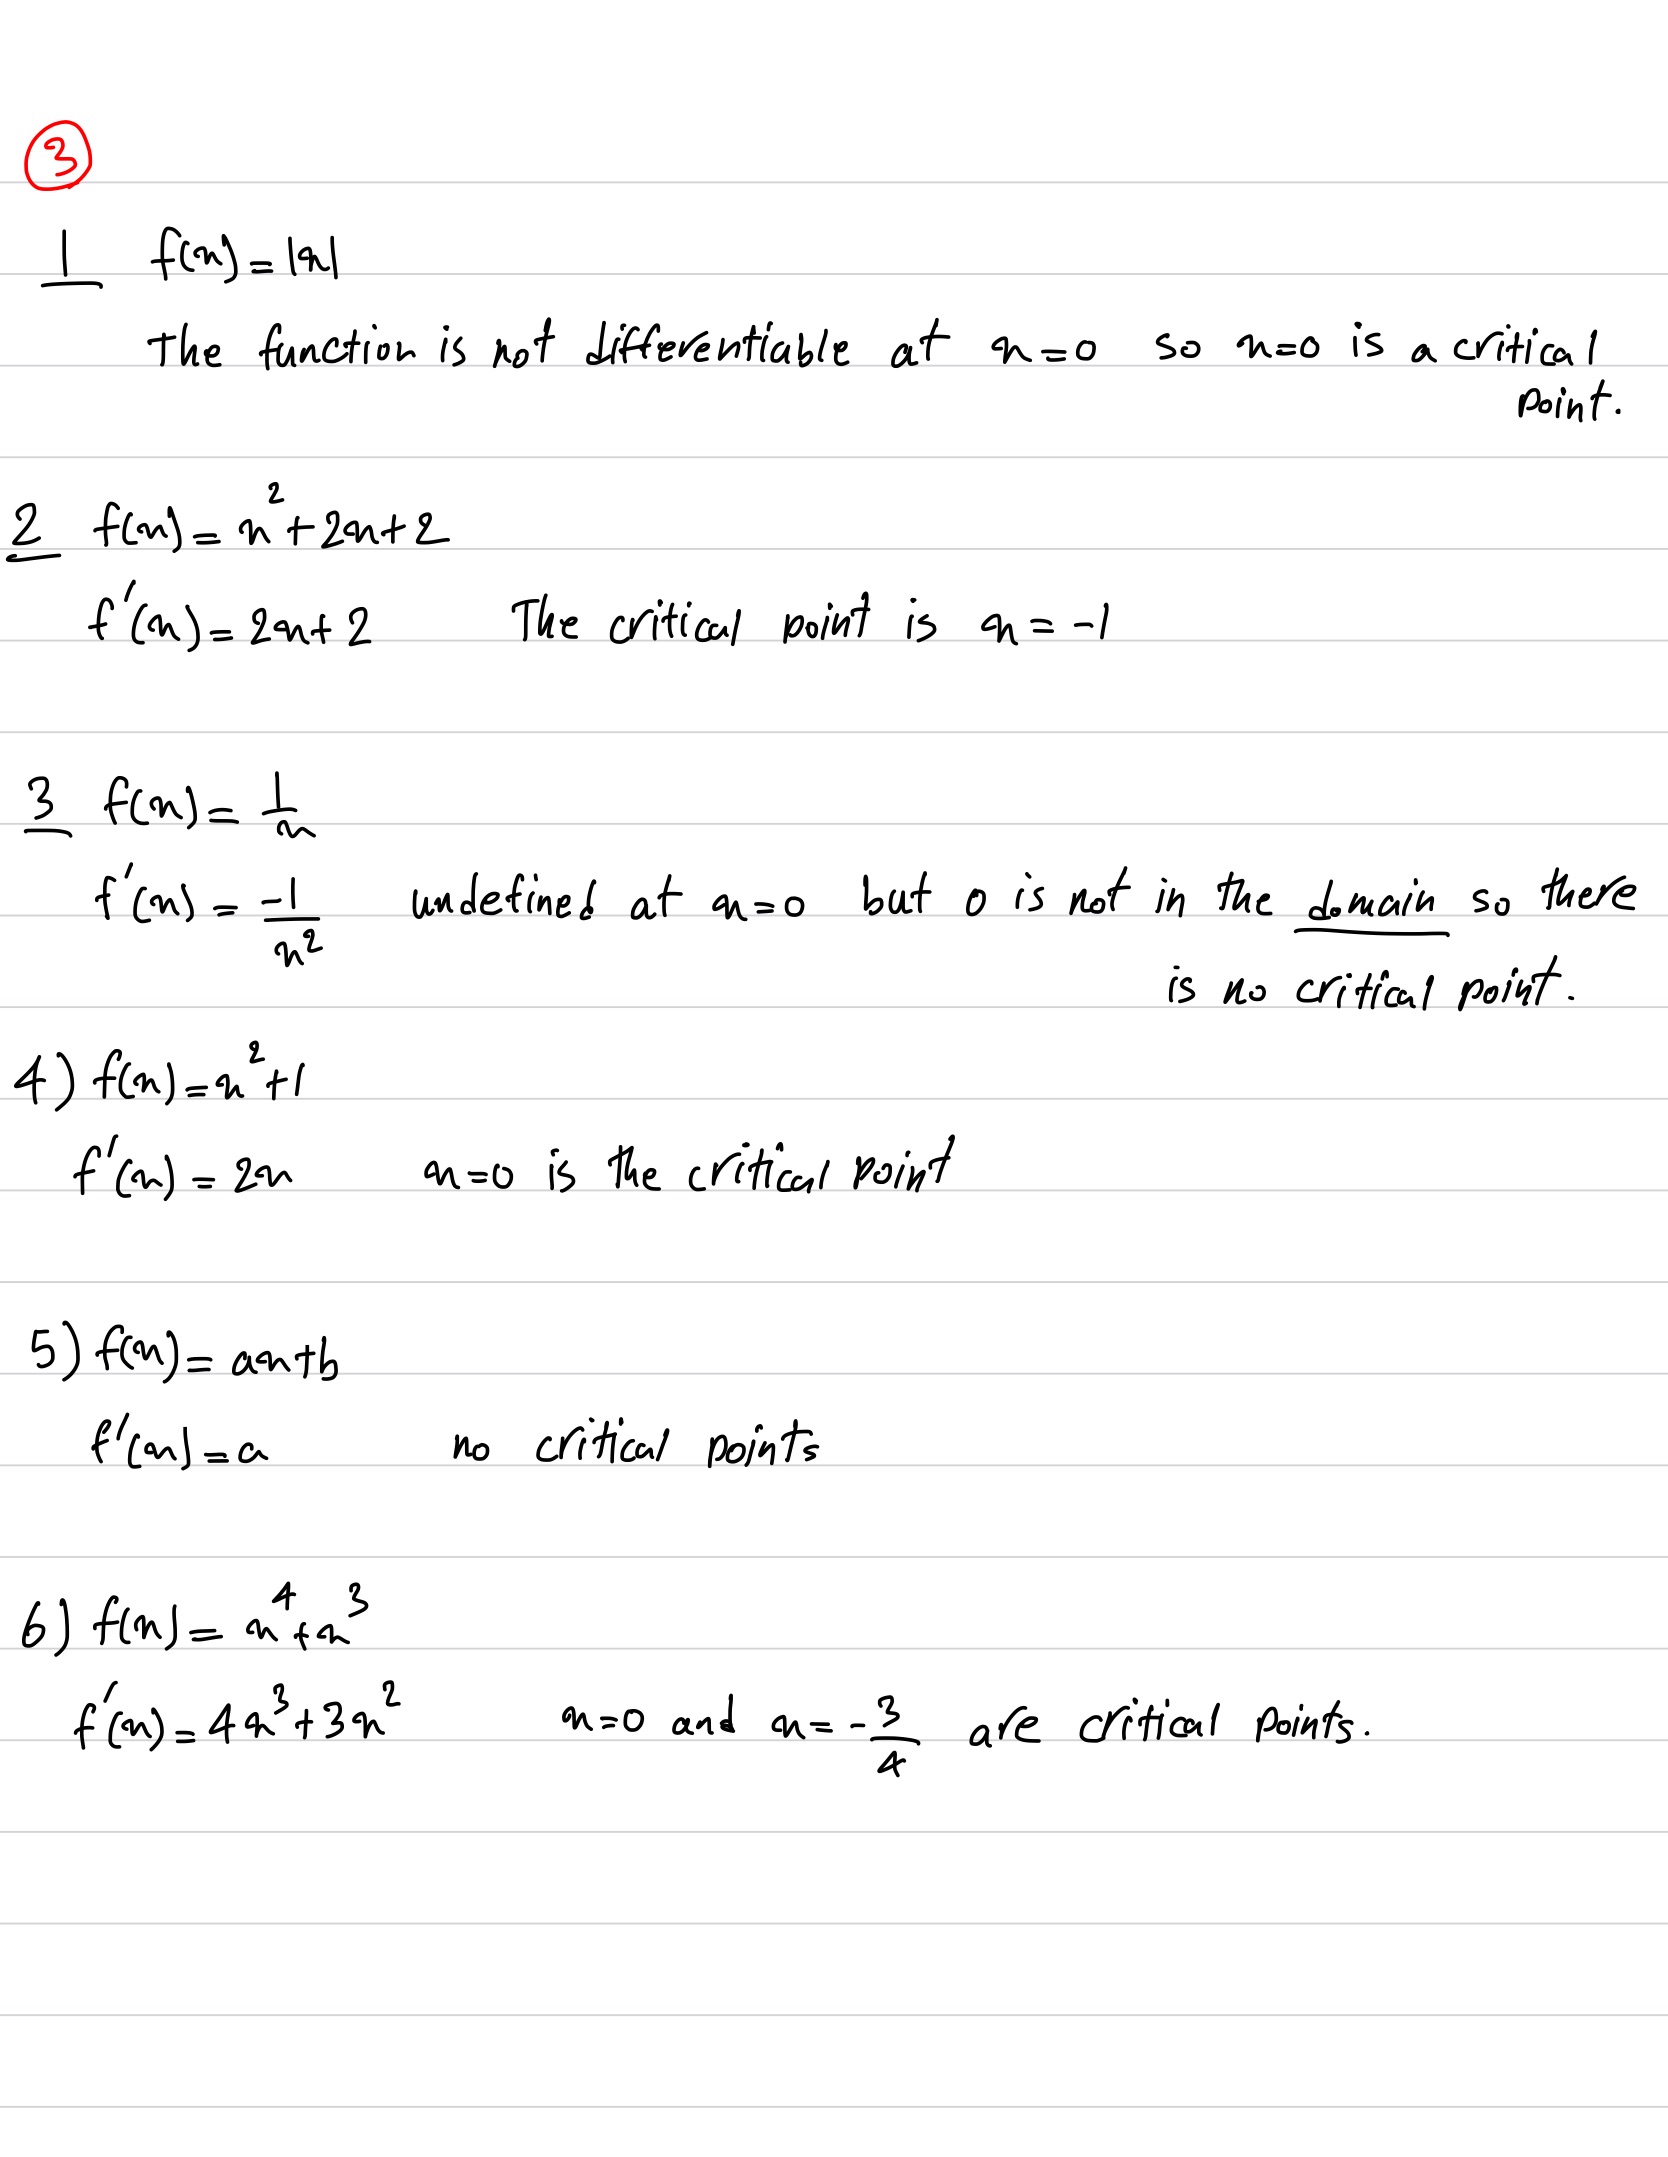 ③
1 f(x) = |x|
The function is not differentiable at x=0 so x=0 is a critical
point.
2 f(x) = x² + 2x + 2
f'(x) = 2x + 2 The critical point is x = -1
3 f(x) = 1/x
f'(x) = -1/x² undefined at x=0 but 0 is not in the domain so there
is no critical point.
4) f(x) = x² + 1
f'(x) = 2x x=0 is the critical point
5) f(x) = ax+b
f'(x) = a no critical points
6) f(x) = x⁴ + x³
f'(x) = 4x³ + 3x² x=0 and x = -3/4 are critical points.